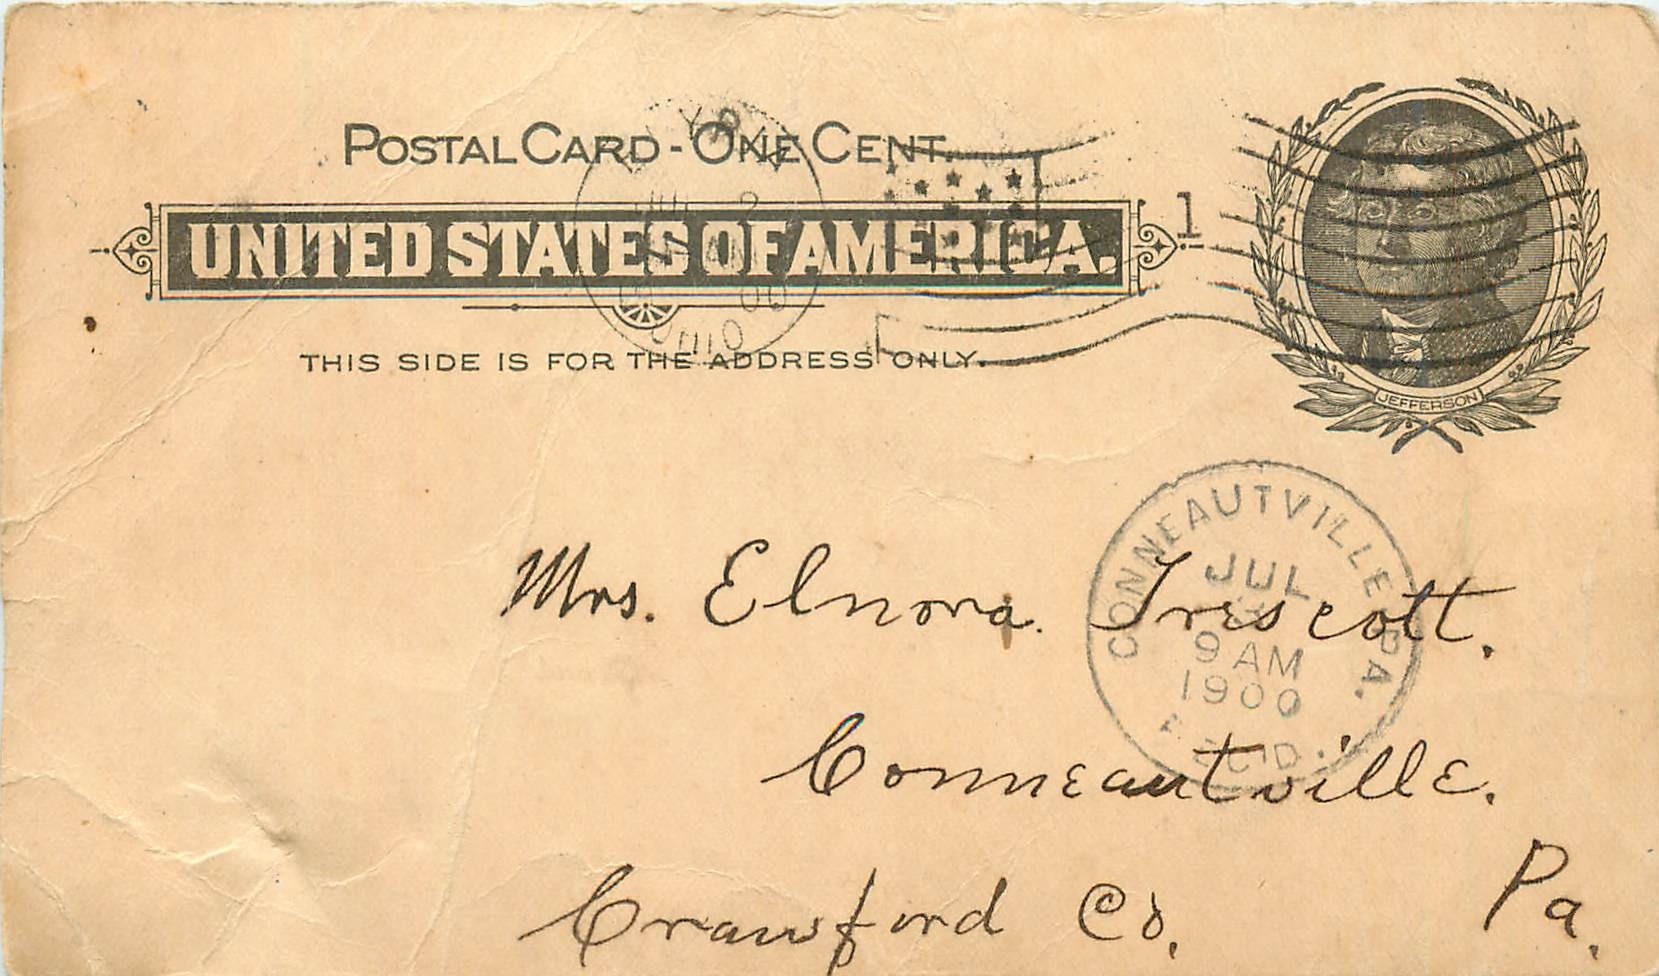 POSTAL CARD - ONE CENT.
UNITED STATES OF AMERICA.
THIS SIDE IS FOR THE ADDRESS ONLY.
JEFFERSON
1
OHIO
CONNEAUTVILLE PA.
JUL
9 AM
1900
REC'D.
Mrs. Elnora Trescott.
Conneautville.
Crawford Co. Pa.